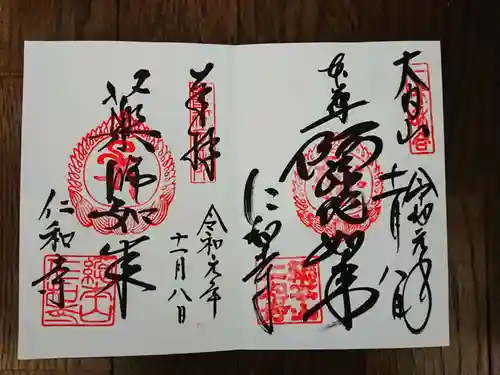 大内山
令和元年
十一月八日
本尊
阿弥陀如来
仁和寺
奉拝
令和元年
十一月八日
薬師如来
仁和寺